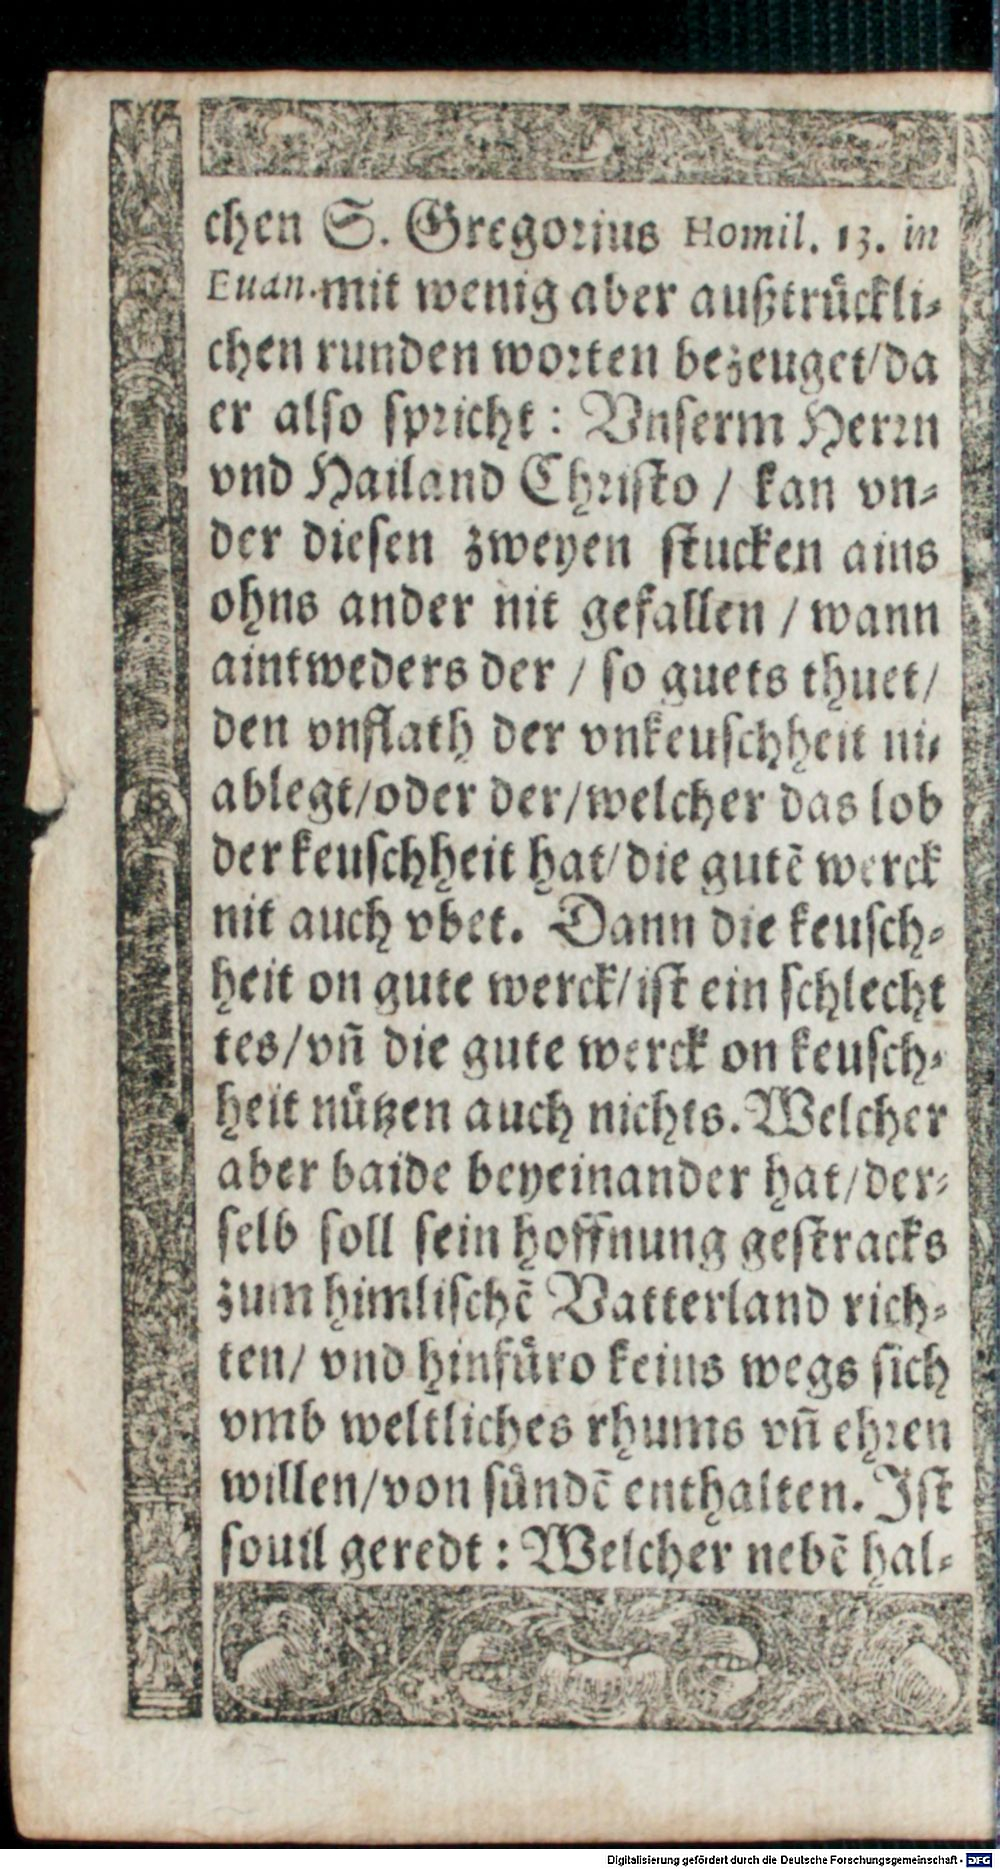 chen S. Gregorius Homil. 13. in
Euan. mit wenig aber außtrückli-
chen runden worten bezeuget/da
er also spricht: Vnserm Herrn
vnd Hailand Christo / kan vn-
der diesen zweyen stucken ains
ohns ander nit gefallen / wann
aintweders der / so guets thuet/
den vnflath der vnkeuschheit ni-
ablegt/oder der/welcher das lob
der keuschheit hat/die gutẽ werck
nit auch vbet. Dann die keusch-
heit on gute werck/ist ein schlecht
tes/vñ die gute werck on keusch-
heit nützen auch nichts. Welcher
aber baide beyeinander hat/der-
selb soll sein hoffnung gestracks
zum himlischẽ Vatterland rich-
ten/ vnd hinfüro keins wegs sich
vmb weltliches rhums vñ ehren
willen/von sündẽ enthalten. Ist
souil geredt: Welcher nebẽ hal-
Digitalisierung gefördert durch die Deutsche Forschungsgemeinschaft - DFG